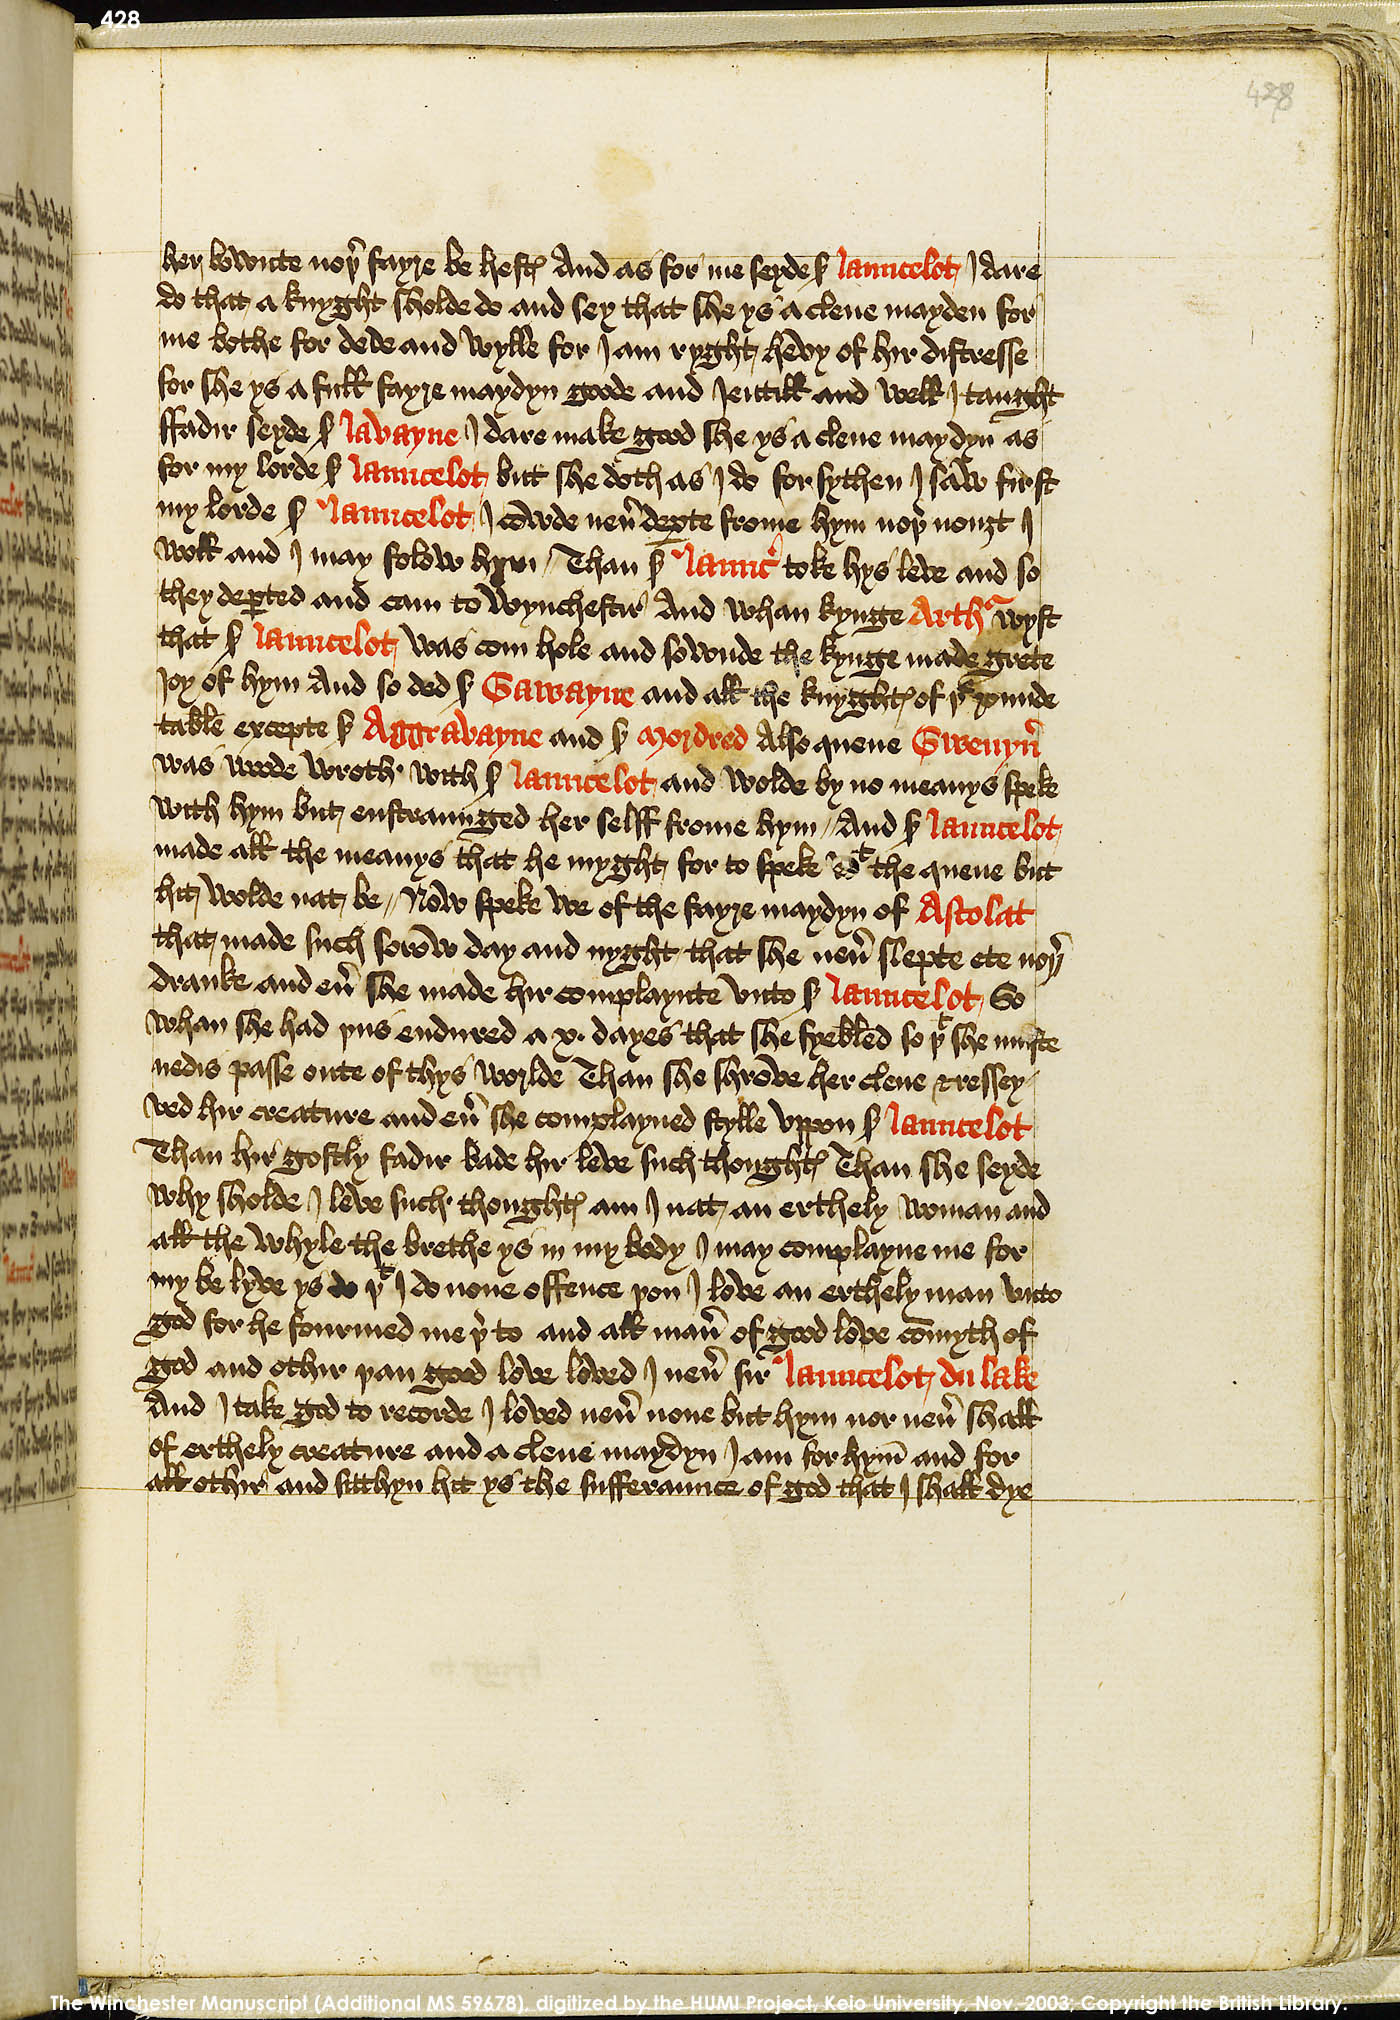 428
428
her bownte noþ fayre be hestꝭ And as for me seyde ẜ launcelot I dare
do that a knyght sholde do and sey that she ys a clene mayden for
me bothe for dede and wylle for I am ryght hevy of hir distresse
for she ys a full fayre maydyn goode and Jentill and well I taught
ffadir seyde ẜ lavayne I dare make good she ys a clene maydyn as
for my lorde ẜ launcelot but she doth as I do for sythen I saw first
my lorde ẜ launcelot I cowde neu͛ deꝑte frome hym noþ nouȝt I
woll and I may folow hym / Than ẜ launc͛ toke hys leve and so
they deꝑted and cam to Wynchestir And whan kynge Arth͛ wyst
that ẜ launcelot was com hole and sownde the kynge made grete
Joy of hym And so ded ẜ Gawayne and all the knyghtꝭ of þe rounde
table excepte ẜ Aggravayne and ẜ Mordred Also quene Gwenyu͛
was woode wroth with ẜ launcelot and wolde by no meanys speke
with hym but enstraunged her selff frome hym // And ẜ launcelot
made all the meanys that he myght for to speke wt the quene but
hit wolde nat be // Now speke we of the fayre maydyn of Astolat
that made such sorow day and nyght that she neu͛ slepte ete noþ
dranke and eu͛ she made hir complaynte vnto ẜ launcelot So
whan she had þus endured a x. dayes that she fyebled so þt she muste
nedis passe oute of thys worlde Than she shrove her clene & ressey
ved hir creature and eu͛ she complayned stylle vppon ẜ launcelot
Than hir gostly fadir bade hir leve such thoughtꝭ Than she seyde
why sholde I leve such thoughtꝭ am I nat an erthely woman and
all the whyle the brethe ys in my body I may complayne me for
my be lyve ys do þt I do none offence þou I love an erthely man vnto
god for he fourmed me þ͛ to and all man͛ of good love comyth of
god and othir þan good love loved I neu͛ sir launcelot du lake
And I take god to recorde I loved neu͛ none but hym nor neu͛ shall
of erthely creature and a clene maydyn I am for hym and for
all othir and sitthyn hit ys the sufferaunce of god that I shall dye
The Winchester Manuscript (Additional MS 59678), digitized by the HUMI Project, Keio University, Nov. 2003; Copyright the British Library.